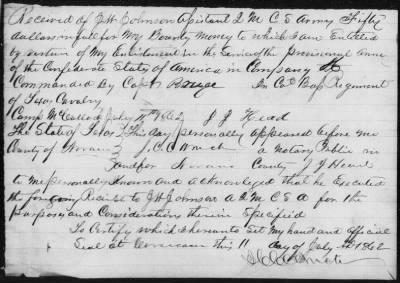 Received of J H Johnson Assistant Q M C S Army Fifty
dollars in full for My Bounty Money to which I am Entitled
by virtue of My Enlistment in the Service of the Provisional Army
of the Confederate State of America in Company
Commanded By Capt In Col Regiment
of Texas Cavalry
Camp July 11th 1862 J J Head
The State of Texas This day personally appeared before me
County of Navarro a Notary Public in
and for Navarro County J J Head
to me personally Known and acknowledged that he Executed
the foregoing Receipt to J H Johnson A Q M C S A for the
Purposes and Considerations therein Specified
To Certify which I hereunto Set My hand and official
Seal at Corsicana this 11 day of July 1862